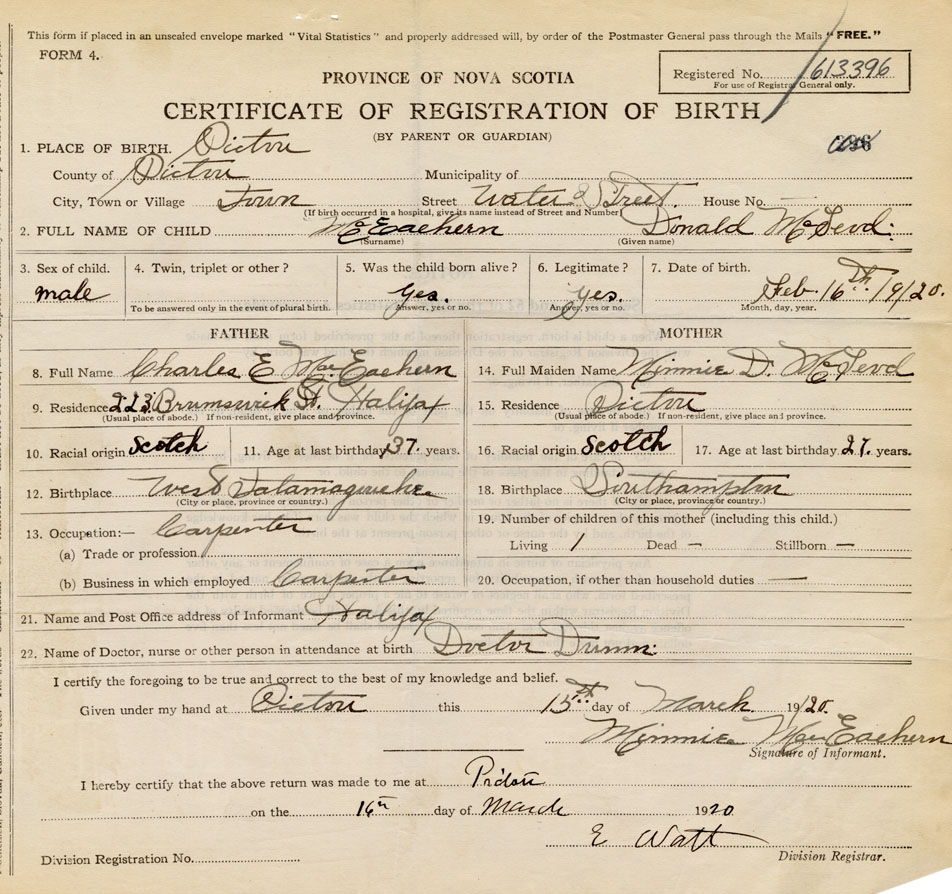 This form if placed in an unsealed envelope marked "Vital Statistics" and properly addressed will, by order of the Postmaster General pass through the Mails "FREE."
FORM 4.
Registered No. 613396
For use of Registrar General only.
PROVINCE OF NOVA SCOTIA
CERTIFICATE OF REGISTRATION OF BIRTH
(BY PARENT OR GUARDIAN)
1. PLACE OF BIRTH. Pictou
County of Pictou Municipality of
City, Town or Village Town Street Water Street. House No. —
(If birth occurred in a hospital, give its name instead of Street and Number)
2. FULL NAME OF CHILD McEachern Donald McLeod.
(Surname) (Given name)
3. Sex of child. 4. Twin, triplet or other? 5. Was the child born alive? 6. Legitimate? 7. Date of birth.
male Yes. Yes. Feb. 16th 1920.
To be answered only in the event of plural birth. Answer, yes or no. Answer, yes or no. Month, day, year.
FATHER MOTHER
8. Full Name Charles E MacEachern 14. Full Maiden Name Minnie D. McLeod
9. Residence 223 Brunswick St. Halifax 15. Residence Pictou
(Usual place of abode.) If non-resident, give place and province. (Usual place of abode.) If non-resident, give place and province.
10. Racial origin Scotch 11. Age at last birthday 37. years. 16. Racial origin Scotch 17. Age at last birthday 27. years.
12. Birthplace West 18. Birthplace Southampton
(City or place, province or country.) (City or place, province or country.)
13. Occupation:— Carpenter 19. Number of children of this mother (including this child.)
(a) Trade or profession Living 1 Dead — Stillborn —
(b) Business in which employed Carpenter 20. Occupation, if other than household duties —
21. Name and Post Office address of Informant Halifax
22. Name of Doctor, nurse or other person in attendance at birth Doctor
I certify the foregoing to be true and correct to the best of my knowledge and belief.
Given under my hand at Pictou this 15th day of March 1920.
Minnie MacEachern
Signature of Informant.
I hereby certify that the above return was made to me at Pictou
on the 16th day of March 1920
E Watt
Division Registration No. Division Registrar.